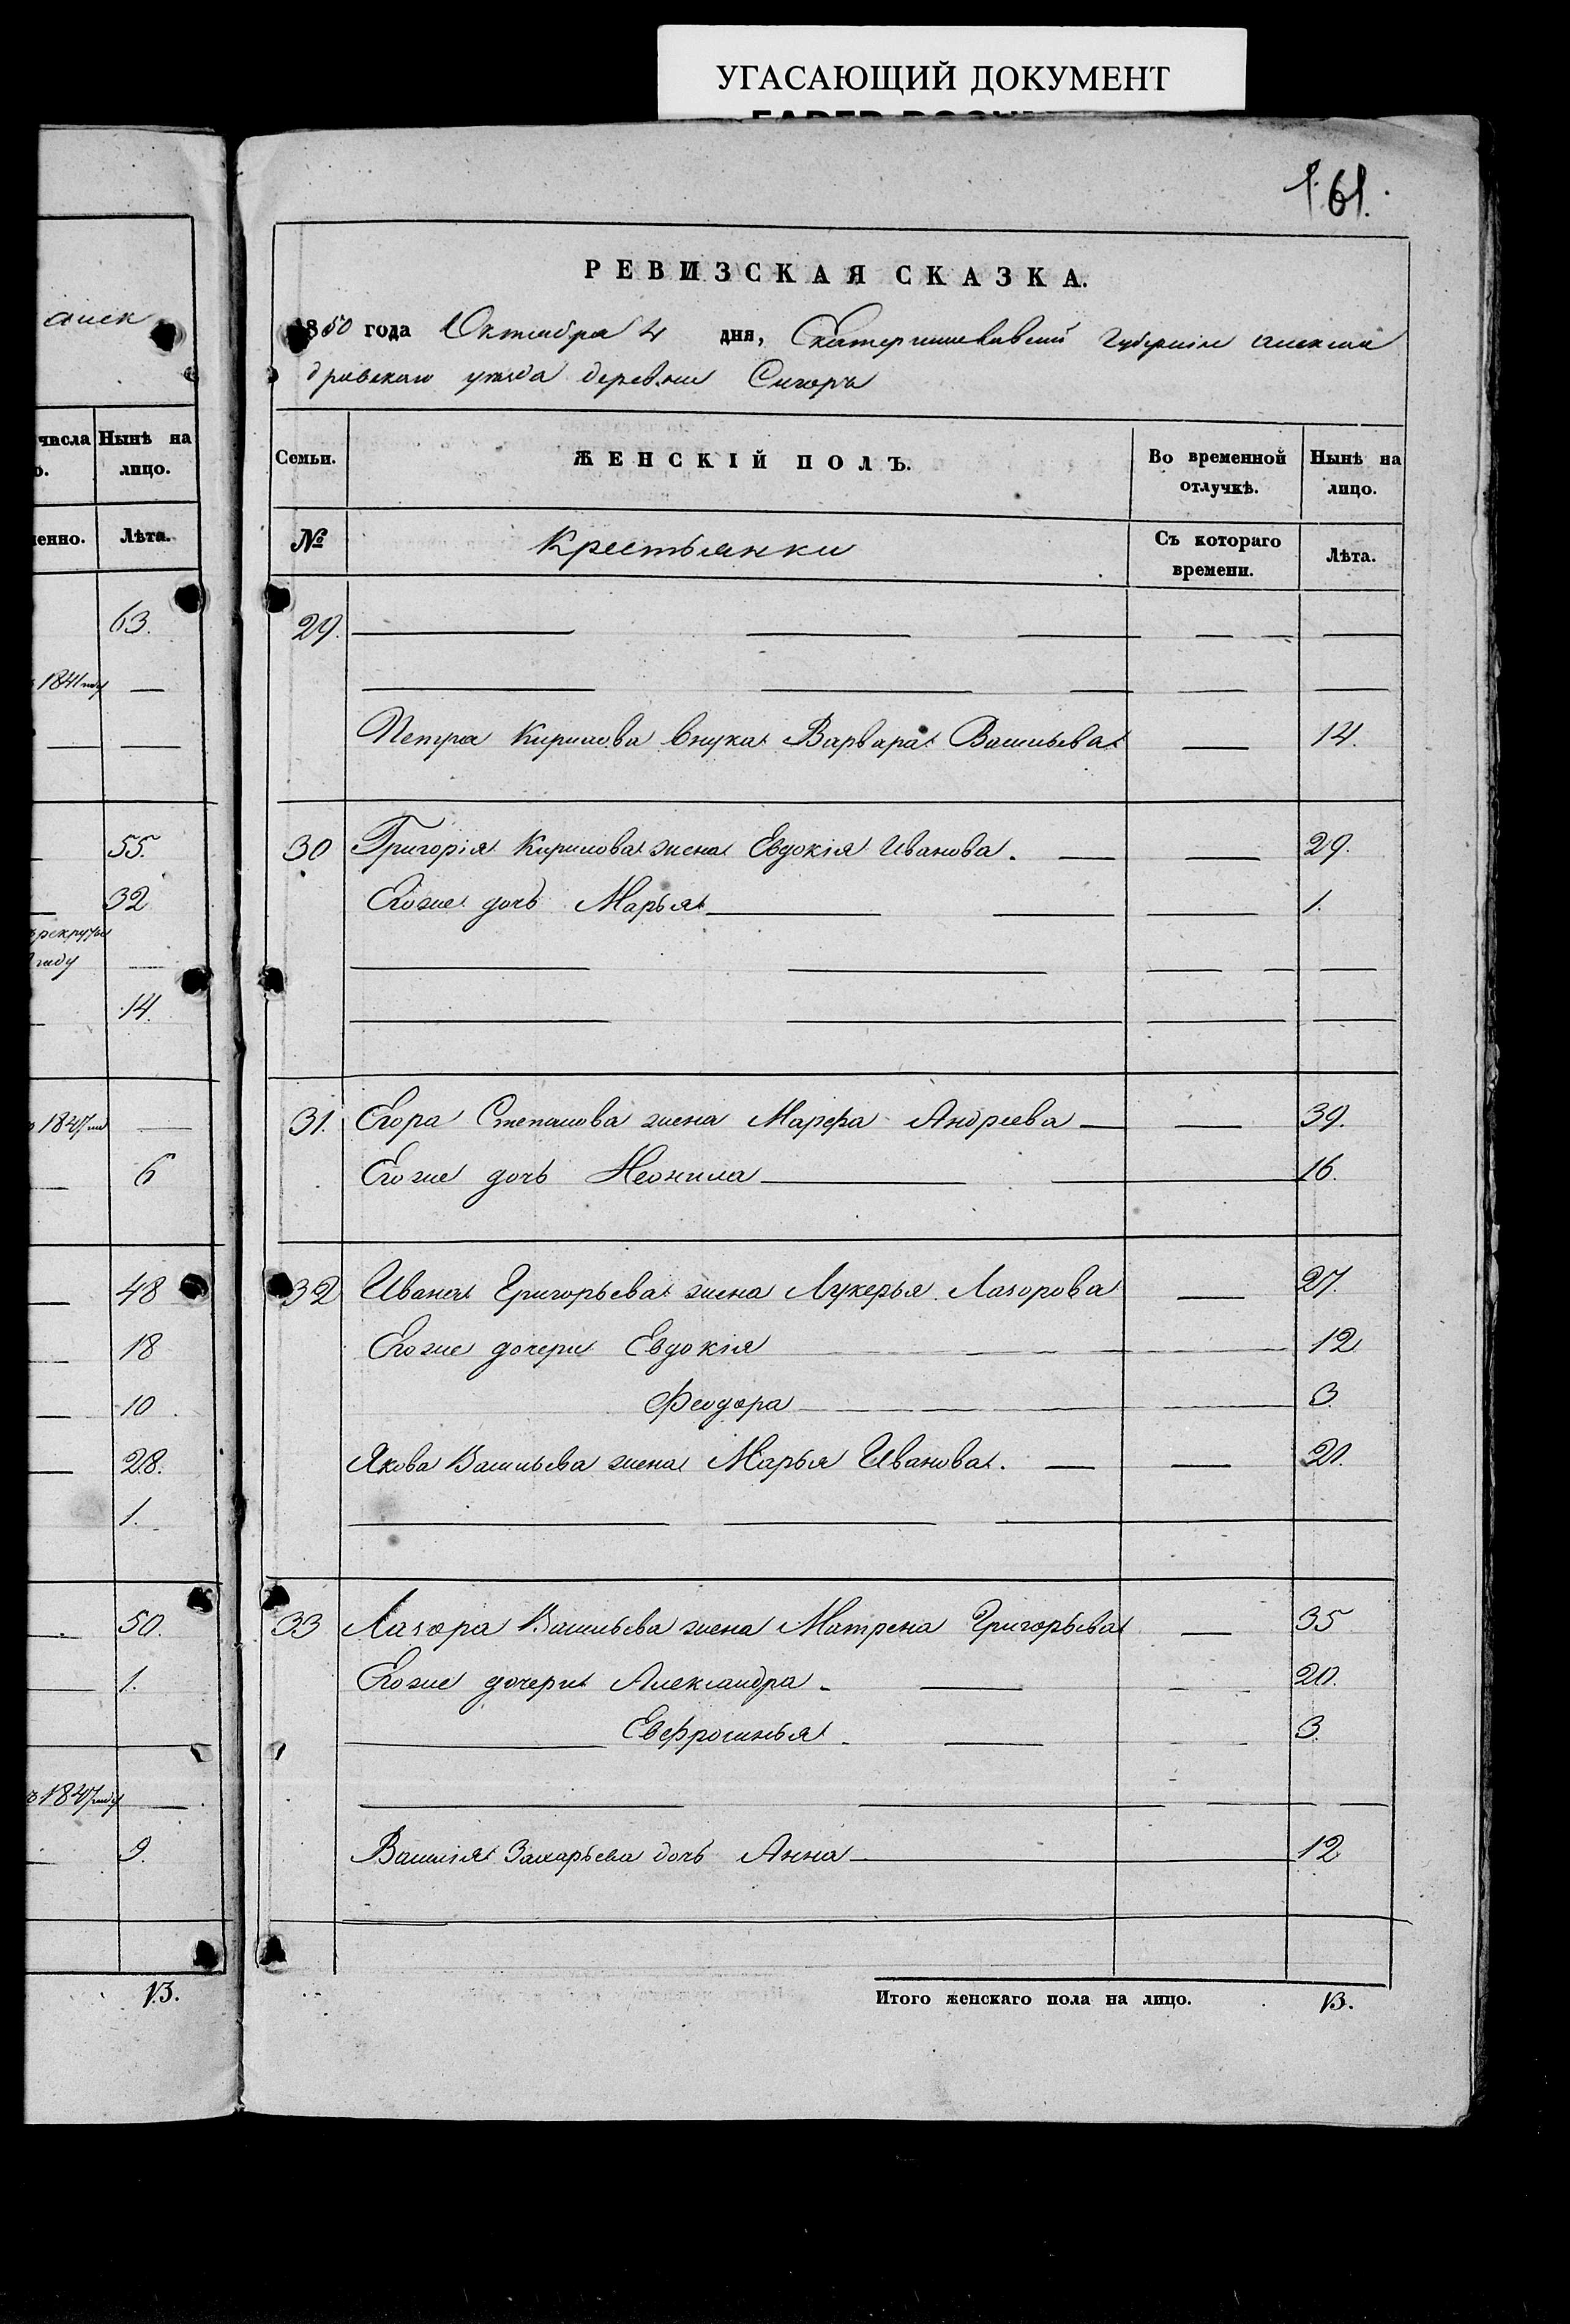 УГАСАЮЩИЙ ДОКУМЕНТ
161.
аиск
числа Нынѣ на
о. лицо.
енно. Лѣта.
63.
1841 году —
— —
55.
— 32
рекруты
году —
— 14.
1847 —
— 6
— 48
— 18
— 10
— 28.
1.
— 50.
— 1.
1847 году —
— 9.
13.
РЕВИЗСКАЯ СКАЗКА.
1850 года Октября 4 дня, Екатеринославской губерніи Алексан
дровскаго уѣзда деревни
Семьи. ЖЕНСКІЙ ПОЛЪ. Во временной отлучкѣ. Нынѣ на лицо.
№ Крестьянки Съ котораго времени. Лѣта.
29. — — — — — —
— — — — —
Петра Кирилова внука Варвара Васильева — 14.
30 Григорія Кирилова жена Евдокія Иванова. — — 29.
Егоже дочь Марья — — — 1.
— — — — —
— — — —
31. Егора Степанова жена Марфа Андреева — — 39.
Егоже дочь Неонила — — 16.
32 Ивана Григорьева жена Лукерья Лазорова — 27.
Егоже дочери Евдокія — 12
Феодора — 3.
Якова Васильева жена Марья Иванова. — — 21.
— — —
33 Лазора Васильева жена Матрена Григорьева — 35
Егоже дочери Александра — — 20.
— Евфросинья — — 3.
— — — — —
Василія Захарьева дочь Анна — 12
Итого женскаго пола на лицо. 13.